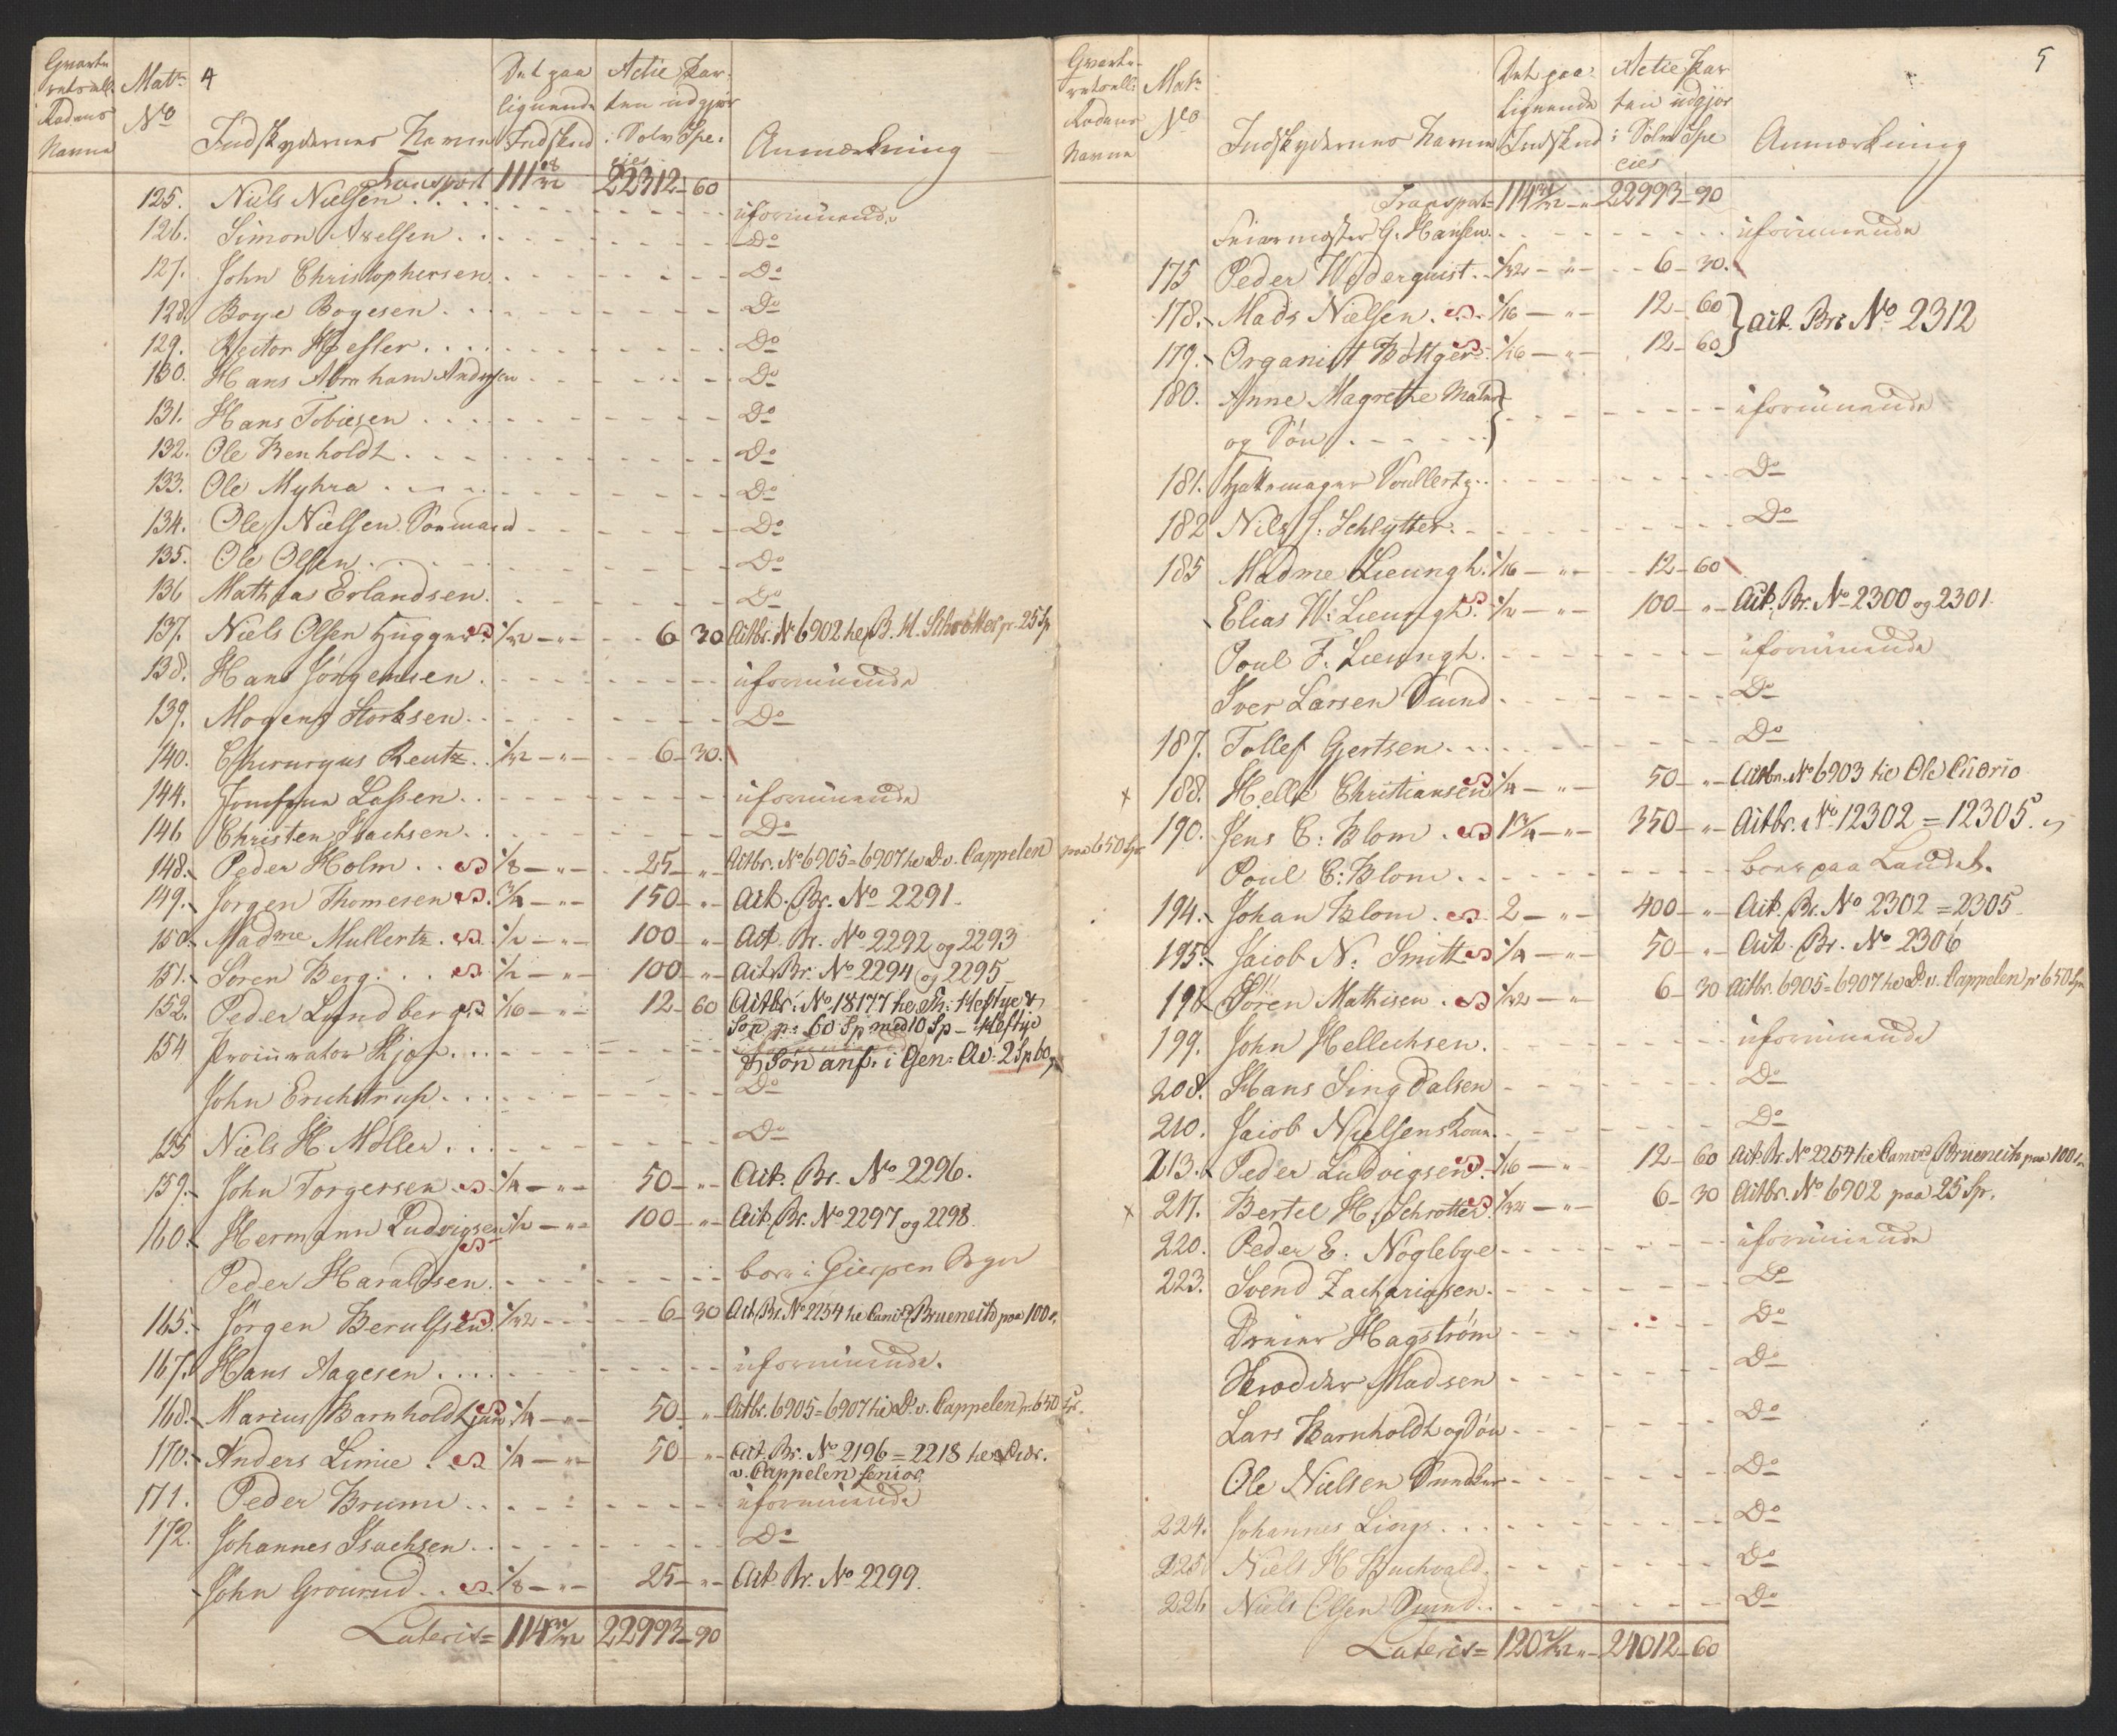 4
Mats No
Indskydernes Navne
Det paa lignende Indskud
Actie Kar-ten udgjør i Sølv Spe-cies
Anmærkning
Transport 111 18/32 22312 - 60
125. Niels Nielsen uformuende
126. Simon Axelsen Do
127. John Christophersen Do
128. Boye Boyesen Do
129. Do
130. Hans Abraham Andersen Do
131. Hans Tobiesen Do
132. Ole Benholdt Do
133. Ole Myhra Do
134. Ole Nielsen Do
135. Ole Olsen Do
136 Mathias Erlandsen Do
137. Niels Olsen Hugger 1/32 - " - 6 30 Actbr. No 6902 he B. H. Schrøtter pr. 25 Sp
138. Hans Jörgensen uformuende
139. Mogens Do
140. Chirurgus Reutz 1/32 - " - 6 - 30.
144. Jomfrue Lassen uformuende
146 Christen Isachsen Do
148. Peder Holm 1/8 - " - 25 - " - Actbr. No 6905 = 6907 he D. v. Cappelen paa 650 Sp
149. Jörgen Thomesen 3/4 - " - 150 - " - Act. Br. No 2291
150. Madme Mullertz 1/2 - " - 100 - " - Act. Br. No 2292 og 2293
151. Sören Berg 1/2 - " - 100 - " - Act. Br. No 2294 og 2295
152. Peder Lundberg 1/16 - " - 12 - 60 Actbr. No 18177 he Th: Heftye &
Søn p: 60 Sp med 10 Sp - Heftye
154 Procurator & Søn anf. i Gen: Av: 2 Sp 60
John Erichstrup Do
155 Niels H Møller Do
159. John Torgersen 1/4 - " - 50 - " - Act. Br. No 2296.
160. Hermann Ludvigsen 1/2 - " - 100 - " - Act. Br. No 2297 og 2298.
Peder Haraldsen boer i Gierpen
165. Jörgen Berulfsen 1/32 6 - 30 Act. Br. No 2254 he paa 100
167. Hans Aagesen uformuende.
168. Marius Barnholdt jun 1/4 - " - 50 - " - Actbr. 6905 = 6907 he D. v. Cappelen p. 650 Sp.
170. Anders Limie 1/4 - " - 50 - " - Act. Br. No 2196 = 2218 he Didr.
v. Cappelen senior.
171. Peder Bruun uformuende
172. Johannes Isachsen Do
John Grourud 1/8 - " - 25 - " - Act. Br. No 2299.
Lateris = 114 31/32 22993 - 90
5
Mats No
Indskydernes Navne
Det paa lignende Indskud
Actie Kar-ten udgjør i Sølv Spe-cies
Anmærkning
Transport = 114 31/32 - " - 22993 - 90
Feiermester G. Hansen uformuende
175 Peder Wederquist 1/32 - " - 6 - 30.
178. Mads Nielsen 1/16 - " - 12 - 60
179. Organist Böttger 1/16 - " - 12 - 60 } Act. Br. No 2312
180. Anne Magrethe
og Søn uformuende
181. Hattemager Do
182 Nils S: Schlytter Do
185 Madme Lieungh 1/16 - " - 12 - 60
Elias W: Lieungh 1/2 - " - 100 - " - Act. Br. No 2300 og 2301
Poul F. Lieungh uformuende
Iver Larsen Sund Do
187. Tollef Gjertsen Do
x 188. Helle Christiansen 1/4 - " - 50 - " - Actbr. No 6903 he Ole
190. Jens C: Blom 1 3/4 - " - 350 - " - Actbr. No 12302 = 12305.
Poul C: Blom boer paa Landet.
194. Johan Blom 2 - " - 400 - " - Act. Br. No 2302 = 2305
195. Jacob N: Smitt 1/4 - " - 50 - " - Act. Br. No 2306
198 Sören Mathisen 1/32 - " - 6 - 30 Actbr. 6905 = 6907 he D. v. Cappelen pr 650 Spe
199. John Hellechsen uformuende
208. Hans Singdalsen Do
210. Jacob Nielsens Kone Do
213. Peder Ludvigsen 1/16 - " - 12 - 60 Act. Br. No 2254 he paa 100
x 217. Bertel H. Schrøtter 1/32 - " - 6 - 30 Actbr. No 6902 paa 25 Sp.
220. Peder E: Nöglebye uformuende
223. Svend Zachariasen Do
Dreier Hagström Do
Madsen Do
Lars Barnholdt og Søn Do
Ole Nielsen Do
224. Johannes Lings Do
225 Niels H Buchvald Do
226 Niels Olsen Sund Do
Lateris = 120 2/32 " - 24012 - 60